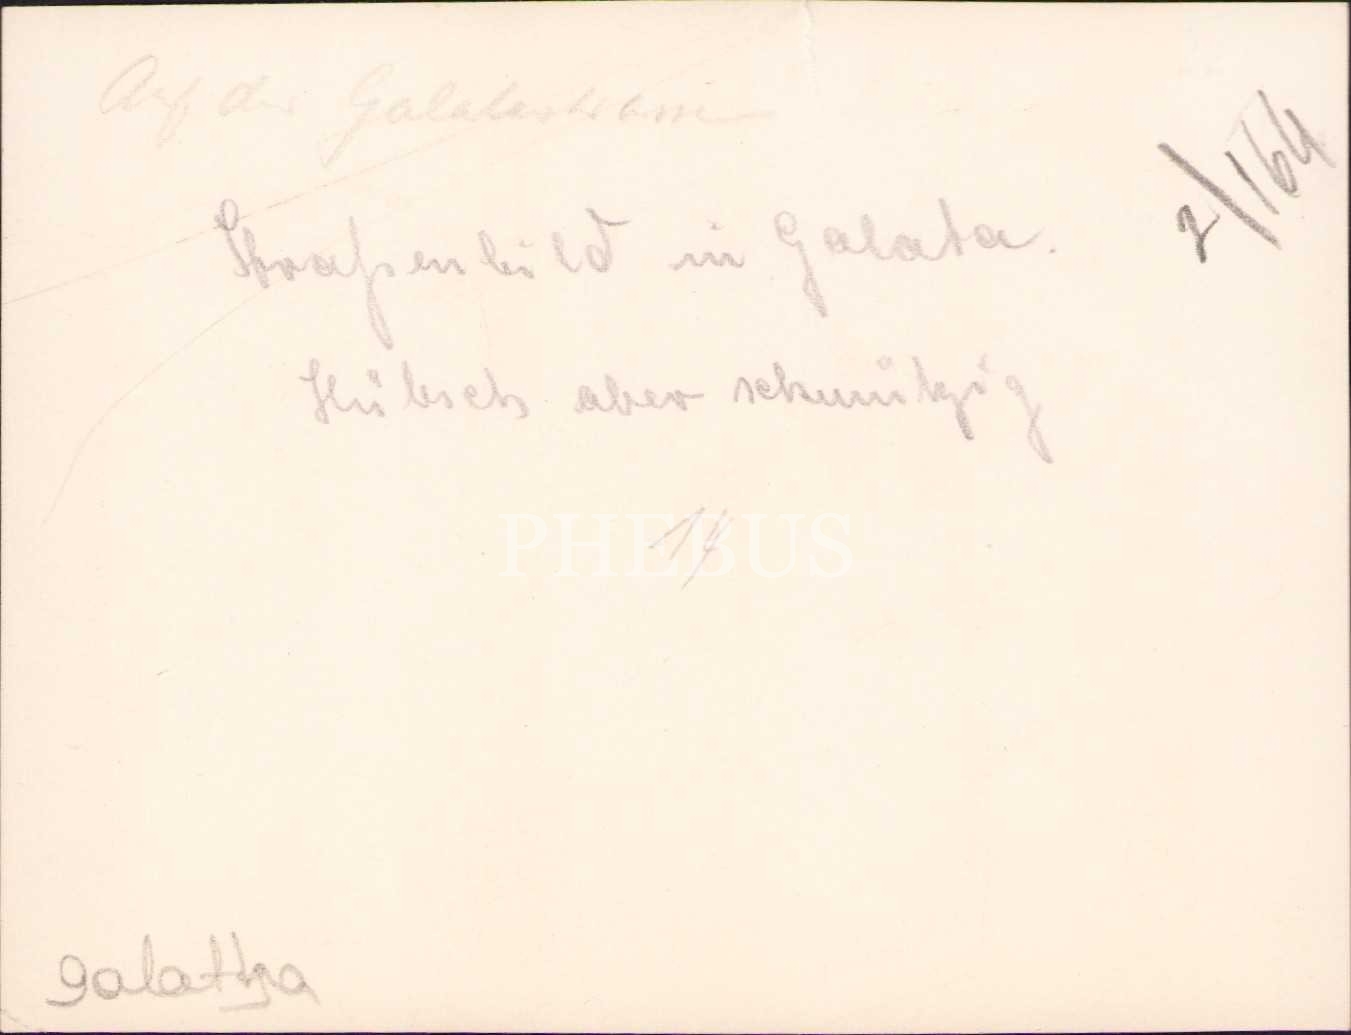 Auf der Galatastrasse
2/164
Straßenbild in Galata.
Hübsch aber schmützig
PHEBUS
14
galata